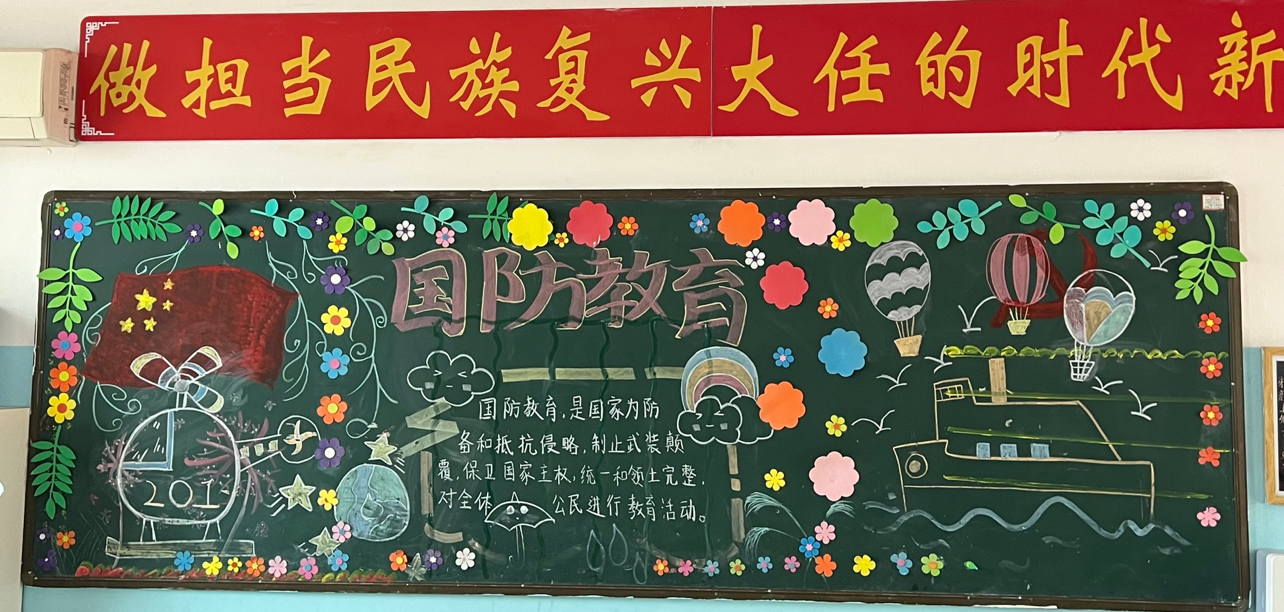 做担当民族复兴大任的时代新
国防教育
国防教育，是国家为防
备和抵抗侵略，制止武装颠
覆，保卫国家主权，统一和领土完整，
对全体公民进行教育活动。
201